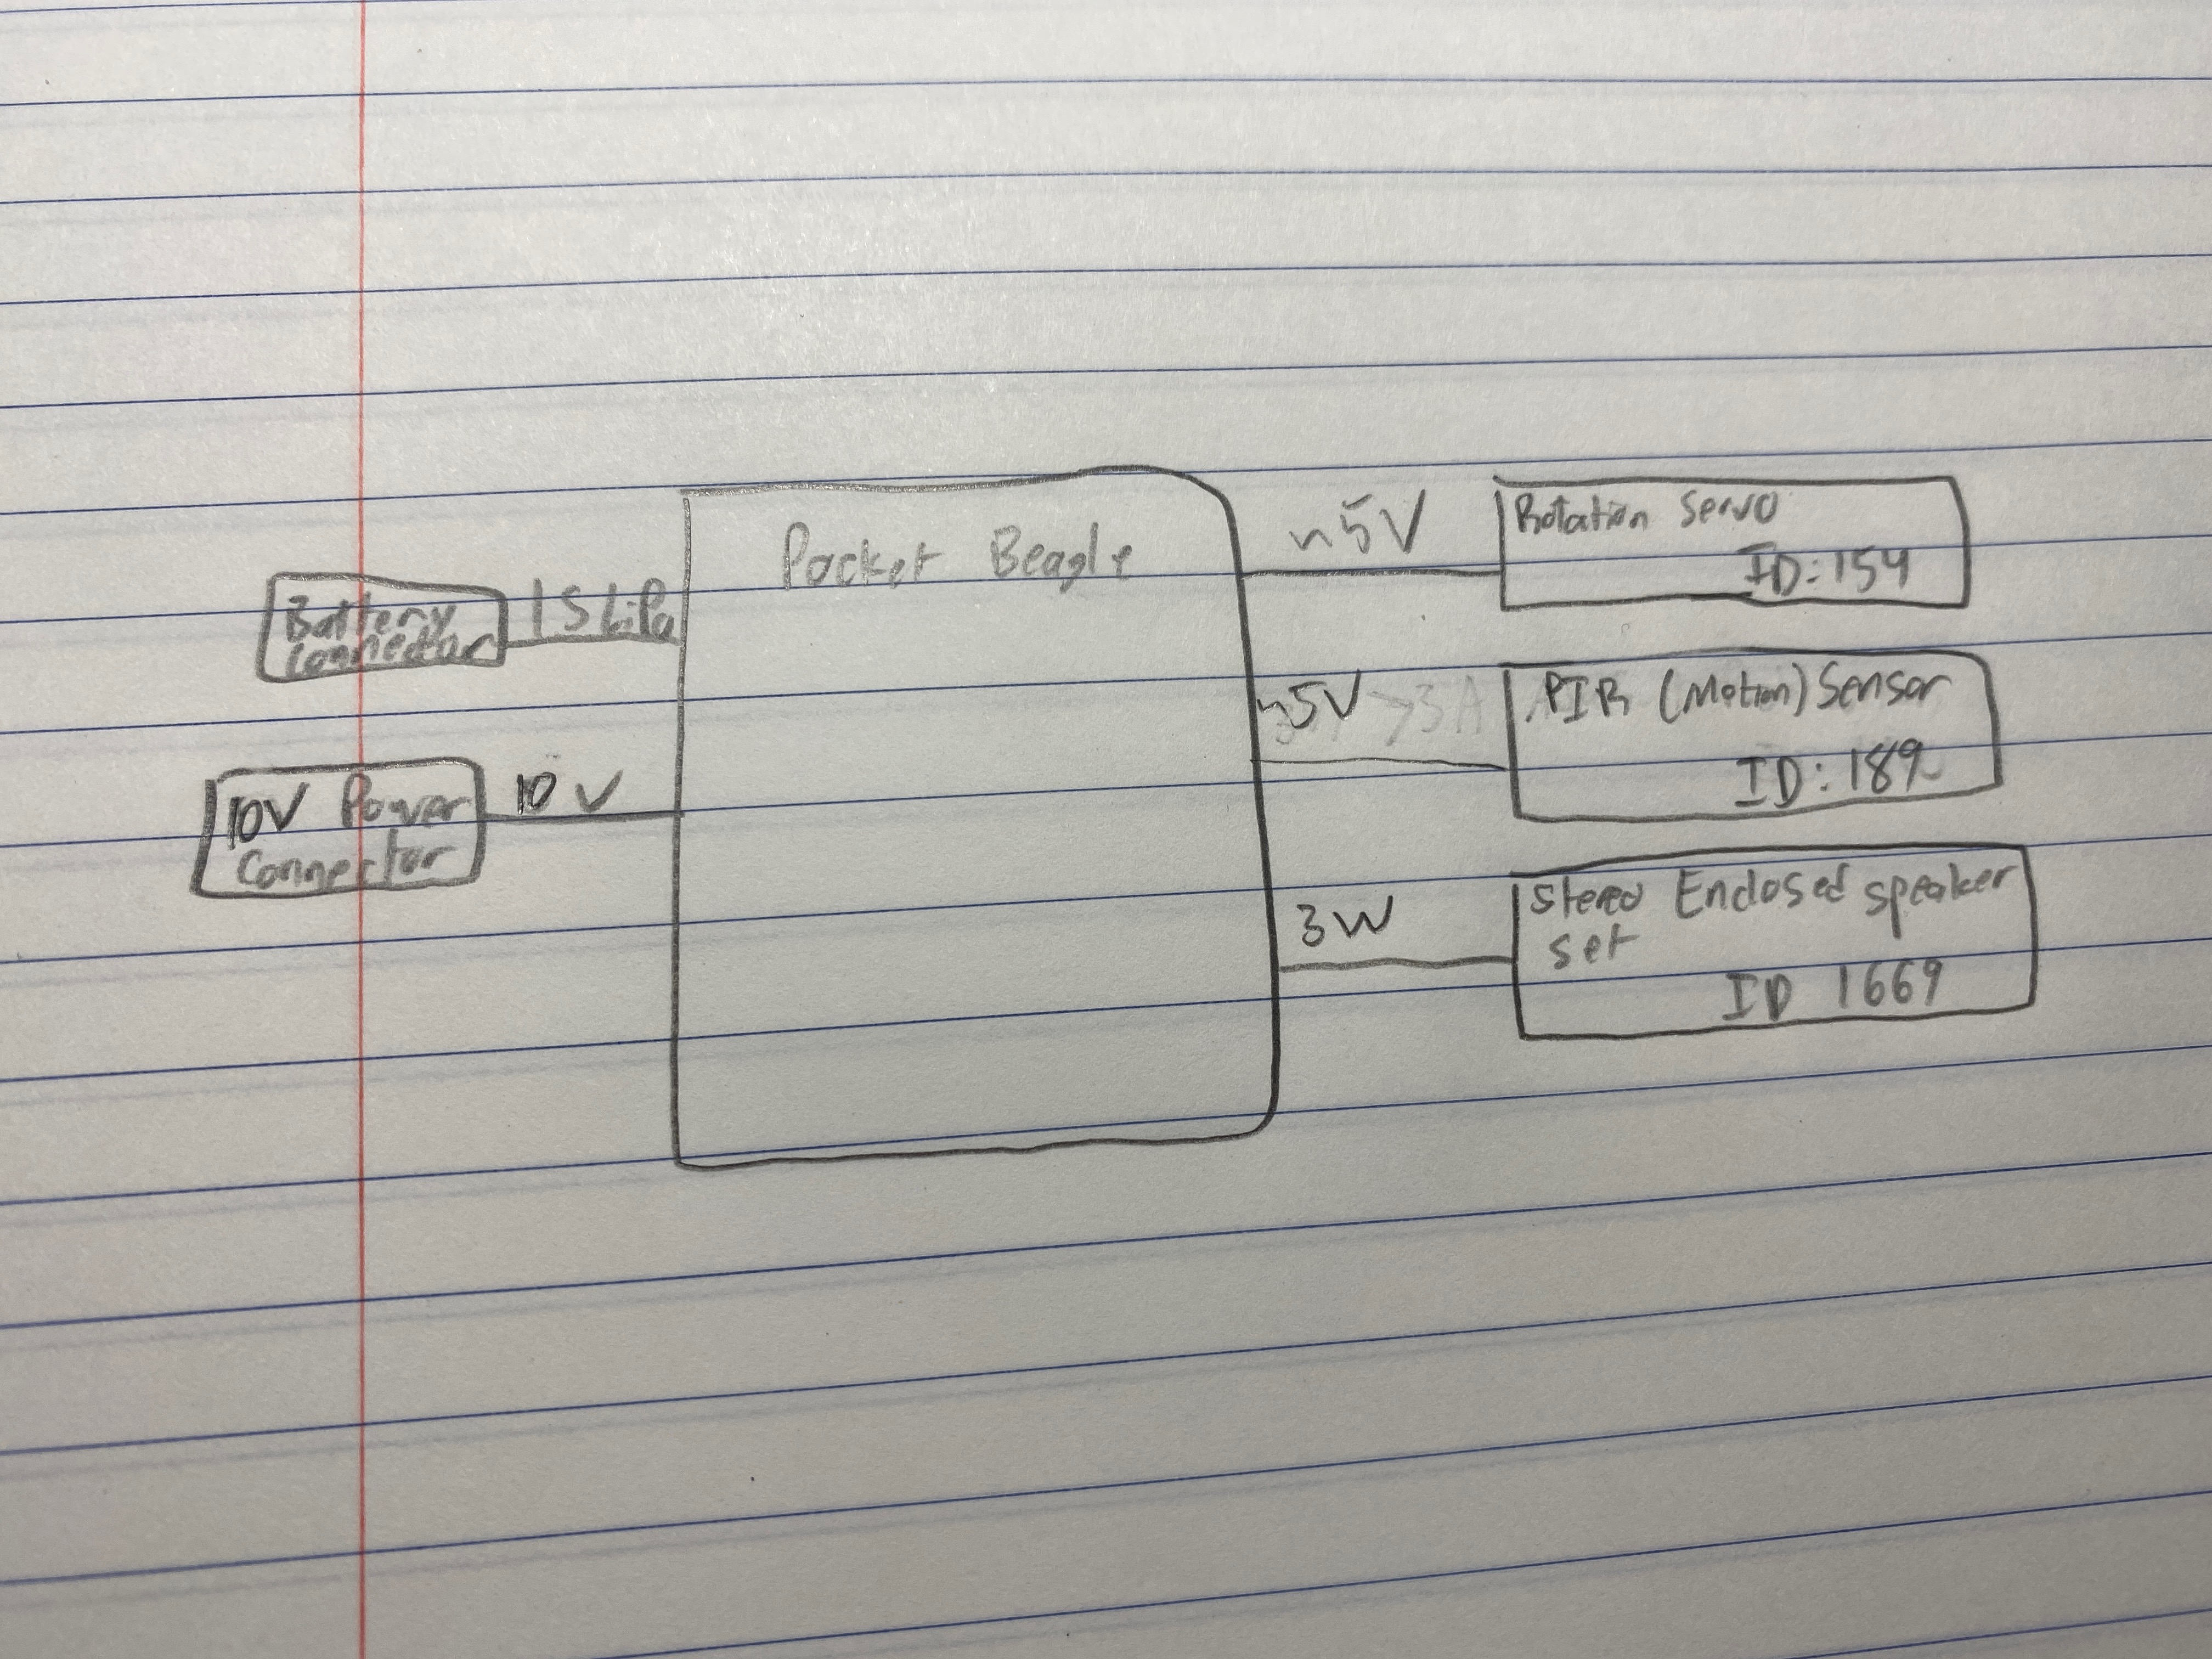 Pocket Beagle
Battery
Connector
1S LiPo
10V Power
Connector
10 V
~5V
Rotation Servo
ID: 154
~5V >3A
PIR (Motion) Sensor
ID: 189
3W
Stereo Enclosed speaker
set
ID 1669